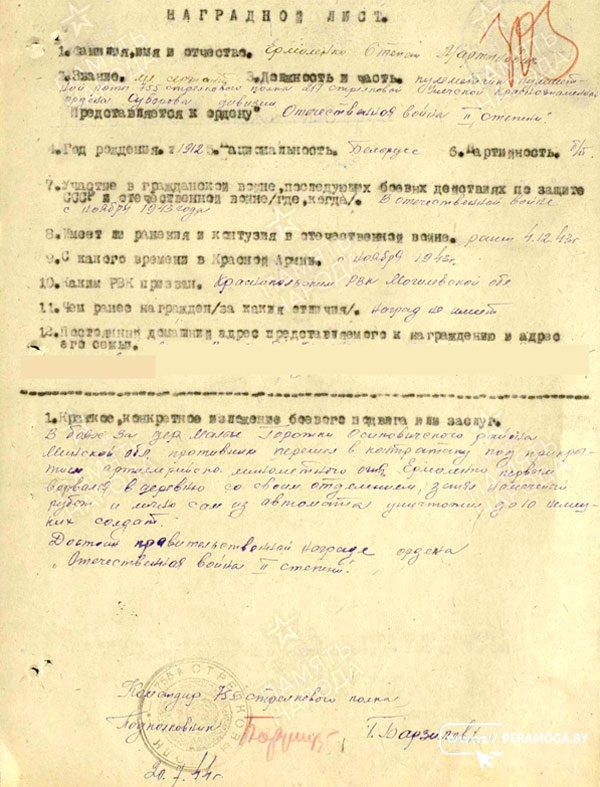 НАГРАДНОЙ ЛИСТ.
1. Фамилия, имя и отчество. Ермоленко Степан Мартинович
2. Звание. мл сержант 3. Должность и часть. пулеметчик пулемет-
ной роты 755 стрелкового полка 217 стрелковой Унечской Краснознаменной
ордена Суворова дивизии
Представляется к ордену "Отечественная война II степени"
4. Год рождения. 1912 5. Национальность. Белорусс 6. Партийность. б/п
7. Участие в гражданской войне, последующих боевых действиях по защите
СССР и отечественной войне /где, когда/. В отечественной войне
с ноября 1943 года
8. Имеет ли ранения и контузия в отечественной войне. ранен 4.12.43г.
9. С какого времени в Красной Армии. с ноября 1943г.
10. Каким РВК призван. Краснопольским РВК Могилевской обл
11. Чем ранее награжден /за какия отличия/. наград не имеет
12. Постоянний домашний адрес представляемого к награждению и адрес
его семьи.
1. Краткое, конкретное изложение боевого подвига или заслуг.
В бою за дер. Малые Горожки Осиповичского района
Минской обл. противник перешел в контратаку под прикры-
тием артиллерийско минометного огня, Ермоленко первым
ворвался в деревню со своим отделением, занял намеченный
рубеж и лично сам из автомата уничтожил до 10 немец-
ких солдат.
Достоин правительственной награде ордена
"Отечественная война II степени".
Командир 755 стрелкового полка
Подполковник Г. Барзилов
20.7.44г.
PERAMOGA.BY